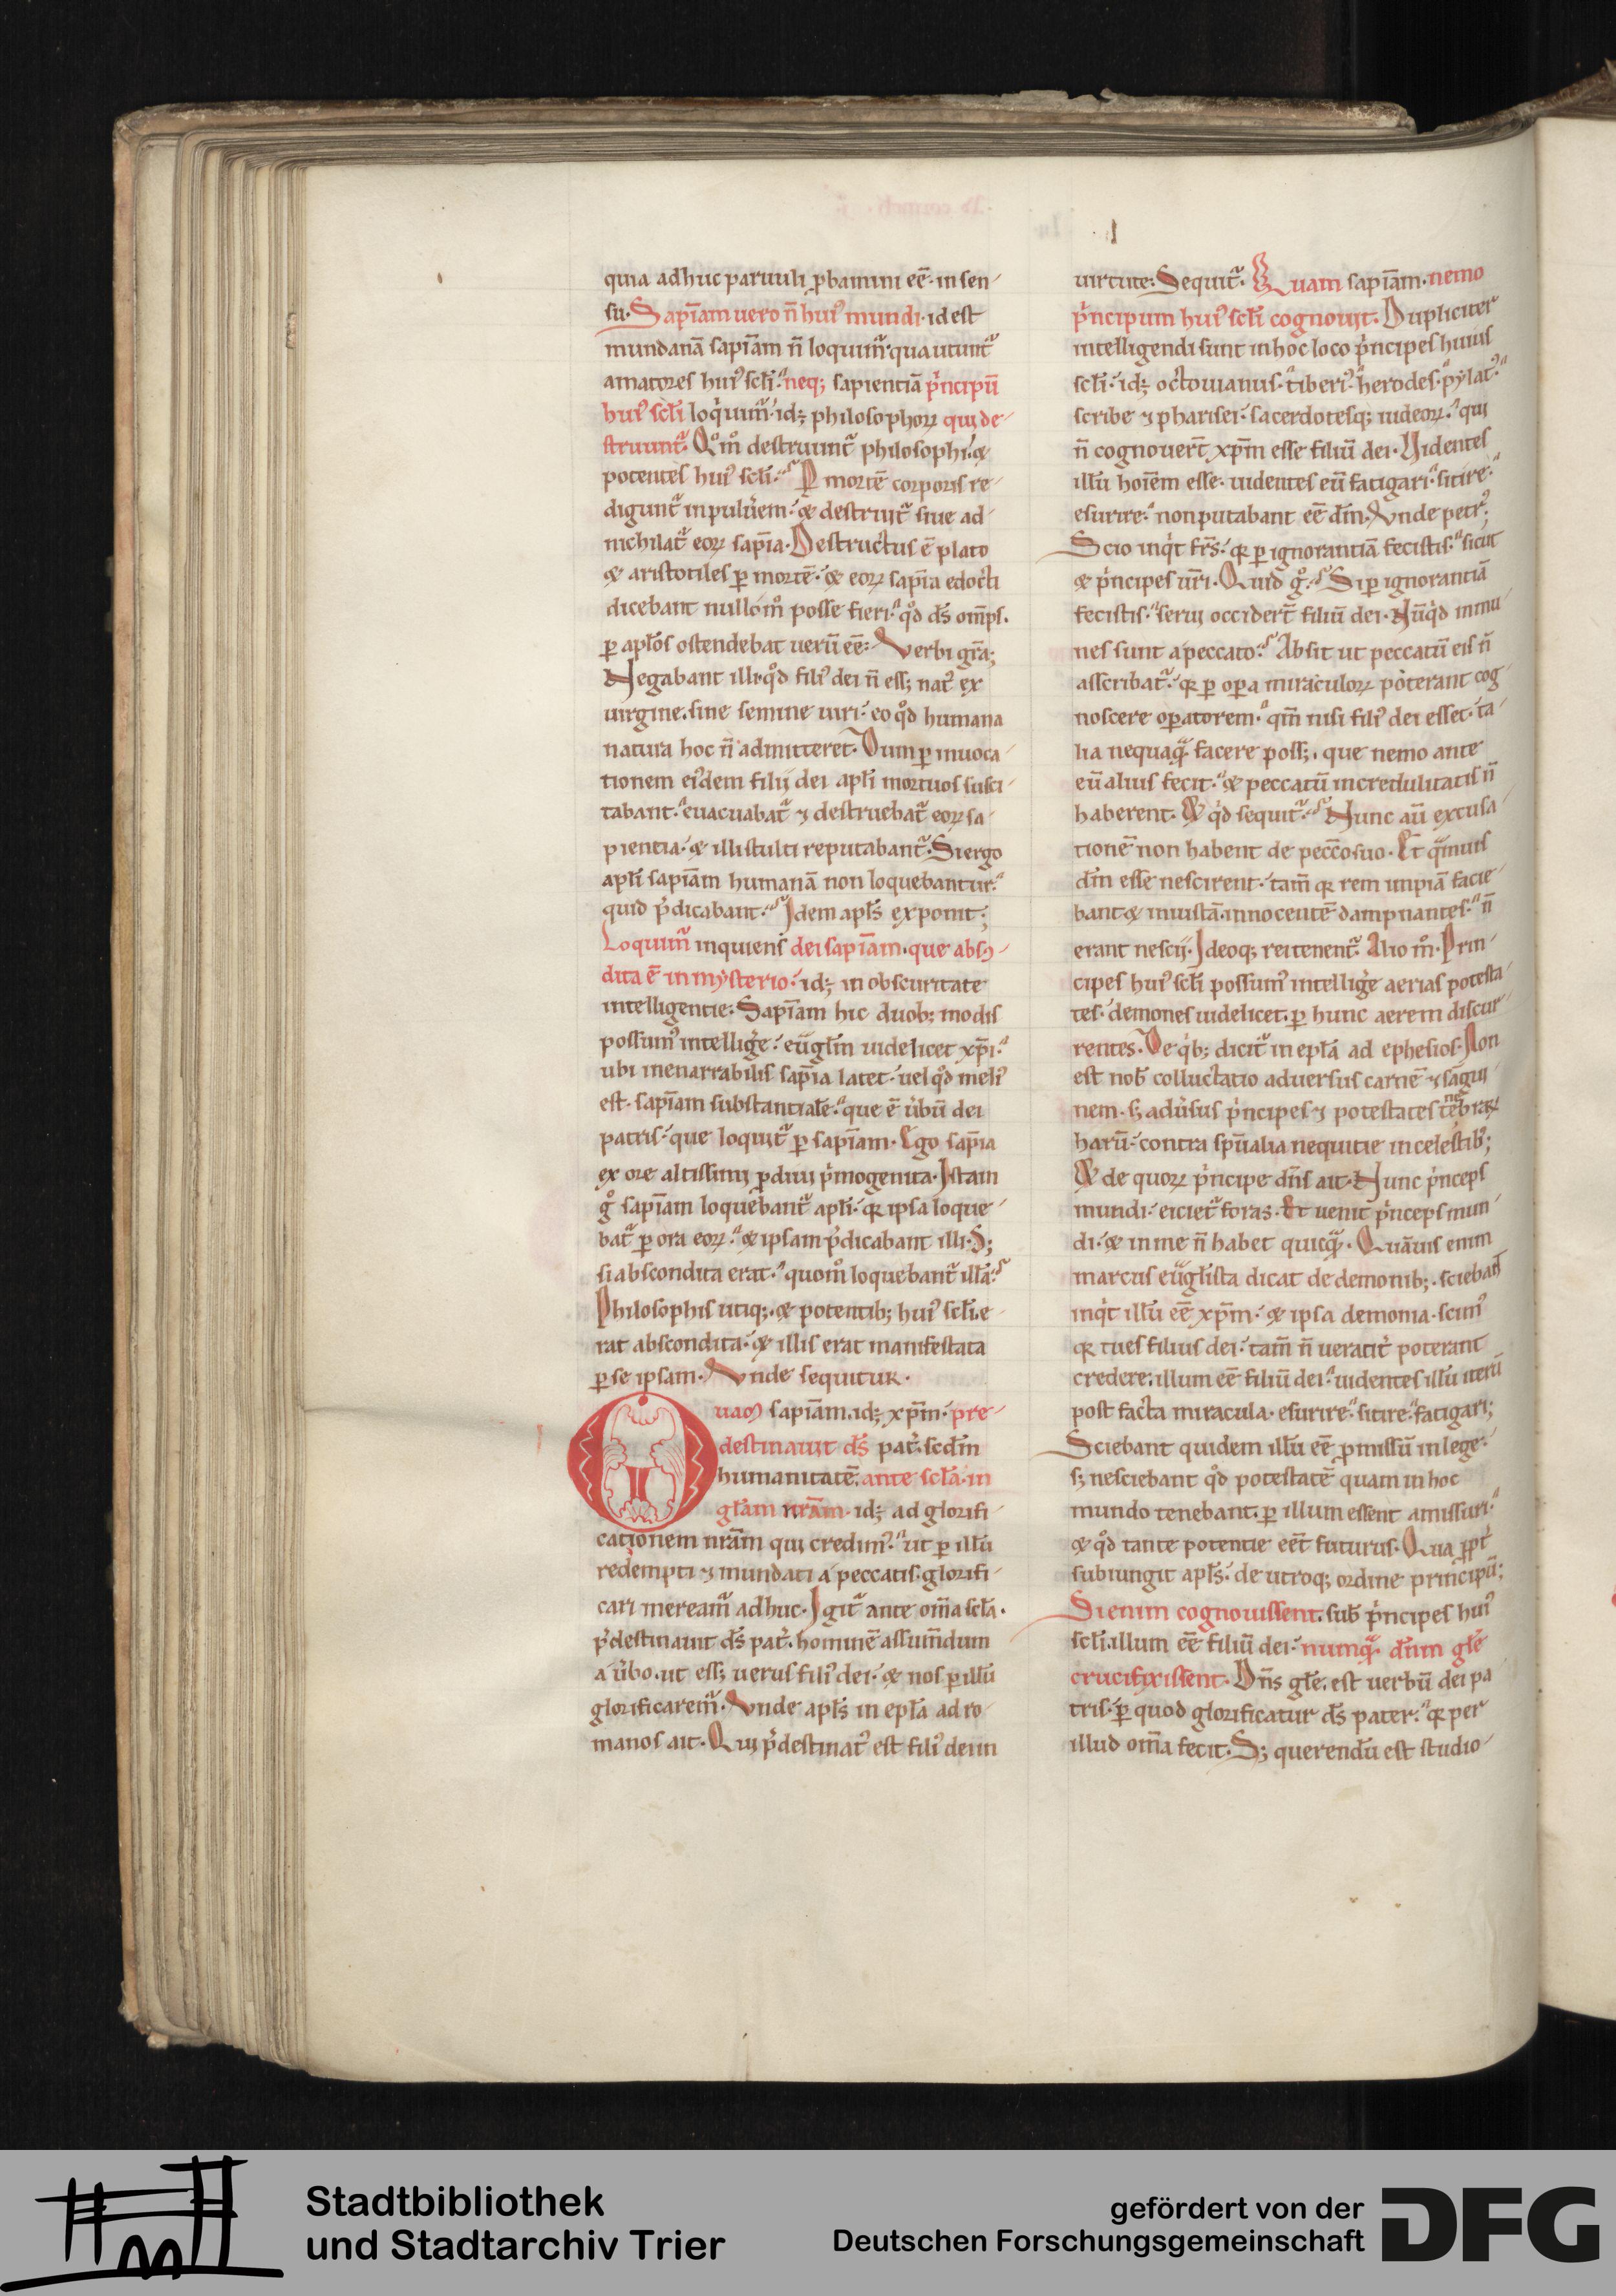 quia adhuc paruuli ꝓbamini eē· in sen-
su· Sapīam uero n̄ huiꝰ mundi· id est
mundanā sapīam n̄ loquimᷣ qua utuntᷣ
amatores huiꝰ scłi· neq; sapientiā pͥncipū
huiꝰ scłi loqͥmᷣ· idꝫ philosophoꝝ qui de-
struuntᷣ· Qͦmͦ destruuntᷣ philosophi· &
potentes huiꝰ scłi· P mortē corporis re-
diguntᷣ in puluͦem· & destruitᷣ siue ad-
nichilatᷣ eoꝝ sapīa· Destructus ē plato
& aristotiles ꝑ mortē· & eoꝝ sapīa edocti
dicebant nullomͦ posse fieri· qͦd dš om̄ps·
ꝑ apłos ostendebat uerū eē· Verbi grā;
Negabant illi· qͦd filiꝰ dei n̄ ess; natꝰ ex
uirgine· sine semine uiri· eo qͦd humana
natura hoc n̄ admitteret· Dum ꝑ inuoca-
tionem eiꝰdem filii dei apłi mortuos susci-
tabant· euacuabatᷣ ⁊ destruebatᷣ eoꝝ sa-
pientia· & illi stulti reputabantᷣ· Si ergo
apłi sapīam humanā non loquebantur·
quid pͥdicabant· Idem apłs exponit;
Loquimᷣ inquiens dei sapīam· que abscon-
dita ē in mẏsterio· idꝫ in obscuritate
intelligentie· Sapīam hic duob; modis
possumꝰ intelligͥe· eūglīn uidelicet xp̄i·
ubi inenarrabilis sapīa latet· uel qͦd meliꝰ
est· sapīam substantialē· que ē ūbū dei
patris· que loquitᷣ ꝑ sapīam· Ego sapīa
ex ore altissimi ꝓdiui pͥmogenita· Istam
gͦ sapīam loquebantᷣ apłi· qꝛ ipsa loque-
batᷣ ꝑ ora eoꝝ· & ipsam pͥdicabant illi· S;
si abscondita erat· quomͦ loquebantᷣ illā·
Philosophis utiq;· & potentib; huiꝰ scłi e-
rat abscondita· & illis erat manifestata
ꝑ se ipsam· Vnde sequitur·
Quam sapīam· idꝫ xp̄m· pre-
destinauit dš pat͛· scd̄m
humanitatē· ante scła· in
głam nrām· idꝫ ad glorifi-
cationem nrām qui credimꝰ· ut ꝑ illū
redempti ⁊ mundati a peccatis· glorifi-
cari mereamᷣ adhuc· Igitᷣ ante om̄a scła·
pͥdestinauit dš pat͛· hominē assumdum
a ūbo· ut ess; uerus filiꝰ dei· & nos ꝑ illū
glorificaremᷣ· Vnde apłs in epła ad ro-
manos ait· Qui pͥdestinatꝰ est filiꝰ dei in
uirtute· Sequitᷣ· Quam sapīam· nemo
pͥncipum huiꝰ scłi cognouit· Dupliciter
intelligendi sunt in hoc loco pͥncipes huius
scłi· idꝫ octouianus· tiberiꝰ· herodes· pẏlatꝰ
scribe ⁊ pharisei· sacerdotesq; iudeoꝝ· qui
n̄ cognouert̄ xp̄m esse filiū dei· Videntes
illū hoīem esse· uidentes eū fatigari· sitire·
esurire· non putabant eē dm̄· Vnde petrꝰ;
Scio inqͥt frs̄· qꝛ ꝑ ignorantiā fecistis· sicut
& pͥncipes ur̄i· Quid gͦ· Si ꝑ ignorantiā
fecistis· serui occidert̄ filiū dei· Nūqͥd inmu-
nes sunt a peccato· Absit ut peccatū eis n̄
asscribatᷣ· qꝛ ꝑ oꝑa miraculoꝝ poterant cog-
noscere oꝑatorem· qm̄ nisi filiꝰ dei esset· ta-
lia nequaqᷓ facere poss;· que nemo ante
eū alius fecit· & peccatū incredulitatis n̄
haberent· & qͥd sequitᷣ· Nunc aū excusa-
tionē non habent de pecc̄o suo· Et qᷓmuis
dm̄ esse nescirent· tam̄ qꝛ rem impiā facie-
bant & iniustā· innocentē dampnantes· n̄
erant nescii· Ideoq; rei tenentᷣ· Alio mͦ· Prin-
cipes huiꝰ scłi possumꝰ intelligͥe aerias potesta-
tes· demones uidelicet· ꝑ hunc aerem discur-
rentes· De qͥb; dicitᷣ in epła ad ephesios· Non
est nob̄ colluctatio aduersus carnē ⁊ sangui-
nem· s; adūsus pͥncipes ⁊ potestates tenebraꝝ
harū· contra spūalia nequitie in celestibꝰ;
& de quoꝝ pͥncipe dn̄s ait· Nunc pͥnceps
mundi· eicietᷣ foras· Et uenit pͥnceps mun-
di· & in me n̄ habet quicqᷓ· Quāuis enim
marcus eūglista dicat de demonib;· sciebant
inqͥt illū eē xp̄m· & ipsa demonia· scimꝰ
qꝛ tu es filius dei· tam̄ n̄ ueracit͛ poterant
credere· illum eē filiū dei· uidentes illū iterū
post facta miracula· esurire· sitire· fatigari;
Sciebant quidem illū eē ꝓmissū in lege·
s; nesciebant qͦd potestatē quam in hoc
mundo tenebant· ꝑ illum essent amissuri·
& qͦd tante potentie eēt futurus· Qua ꝓpt͛
subiungit apłs· de utroq; ordine principū;
Si enim cognouissent· sub̄ pͥncipes huiꝰ
scłi· illum eē filiū dei· numqᷓ dn̄m głe
crucifixissent· Dn̄s głe· est uerbū dei pa-
tris· ꝑ quod glorificatur dš pater· qꝛ per
illud om̄a fecit· S; querendū est studio-
Stadtbibliothek
und Stadtarchiv Trier
gefördert von der
Deutschen Forschungsgemeinschaft
DFG